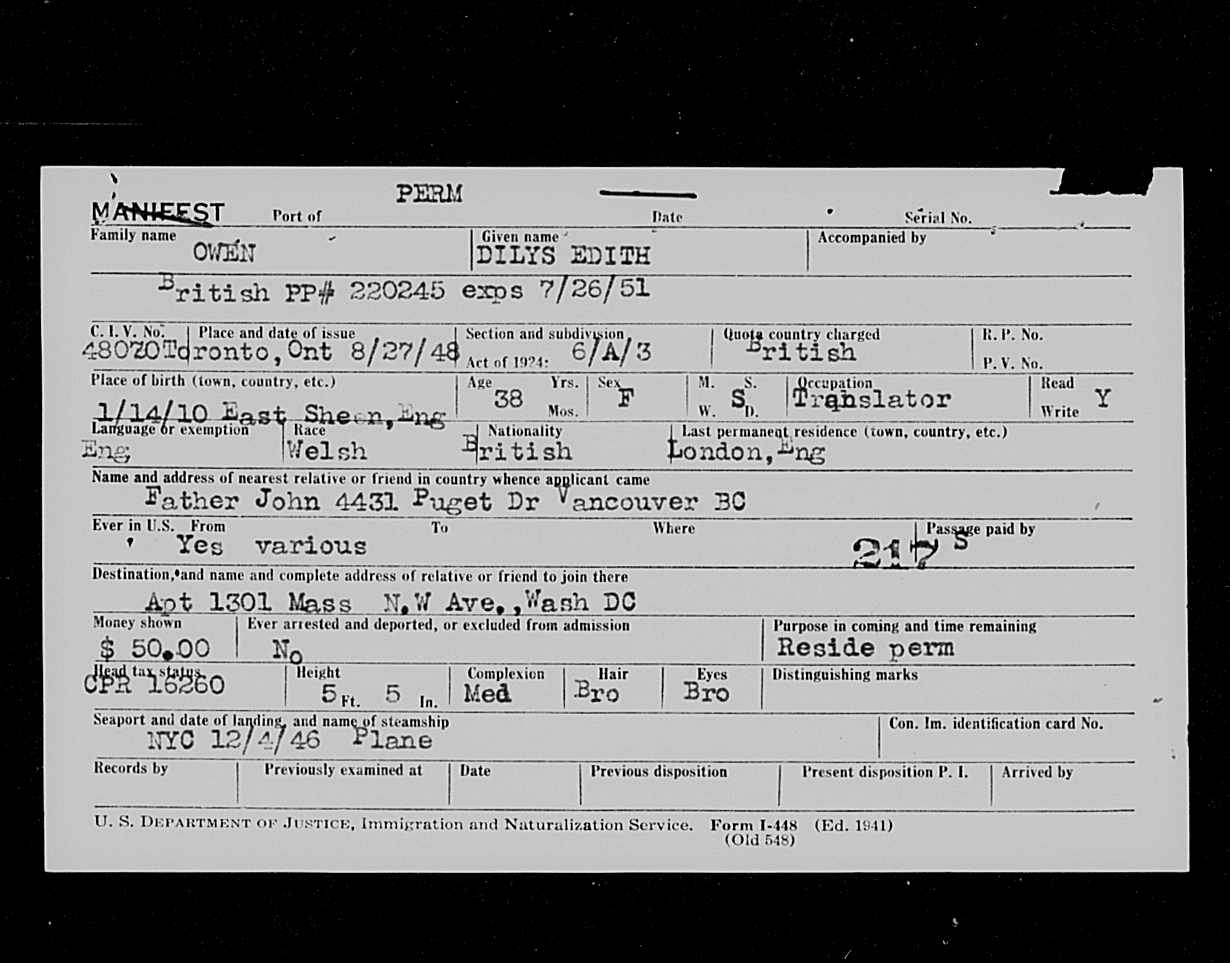 PERM
MANIFEST Port of Date Serial No.
Family name Given name Accompanied by
OWEN DILYS EDITH
British PP# 220245 exps 7/26/51
C. I. V. No. Place and date of issue Section and subdivision Quota country charged R. P. No.
48020 Toronto, Ont 8/27/48 Act of 1924: 6/A/3 British P. V. No.
Place of birth (town, country, etc.) Age Yrs. Sex M. S. Occupation Read
1/14/10 East Sheen, Eng 38 Mos. F W. S D. Translator Write Y
Language or exemption Race Nationality Last permanent residence (town, country, etc.)
Eng Welsh British London, Eng
Name and address of nearest relative or friend in country whence applicant came
Father John 4431 Puget Dr Vancouver BC
Ever in U.S. From To Where Passage paid by
Yes various 217 S
Destination, and name and complete address of relative or friend to join there
Apt 1301 Mass N.W Ave., Wash DC
Money shown Ever arrested and deported, or excluded from admission Purpose in coming and time remaining
$ 50.00 No Reside perm
Head tax status Height Complexion Hair Eyes Distinguishing marks
CPR 16260 5 Ft. 5 In. Med Bro Bro
Seaport and date of landing, and name of steamship Con. Im. identification card No.
NYC 12/4/46 Plane
Records by Previously examined at Date Previous disposition Present disposition P. I. Arrived by
U. S. DEPARTMENT OF JUSTICE, Immigration and Naturalization Service. Form I-448 (Ed. 1941)
(Old 548)